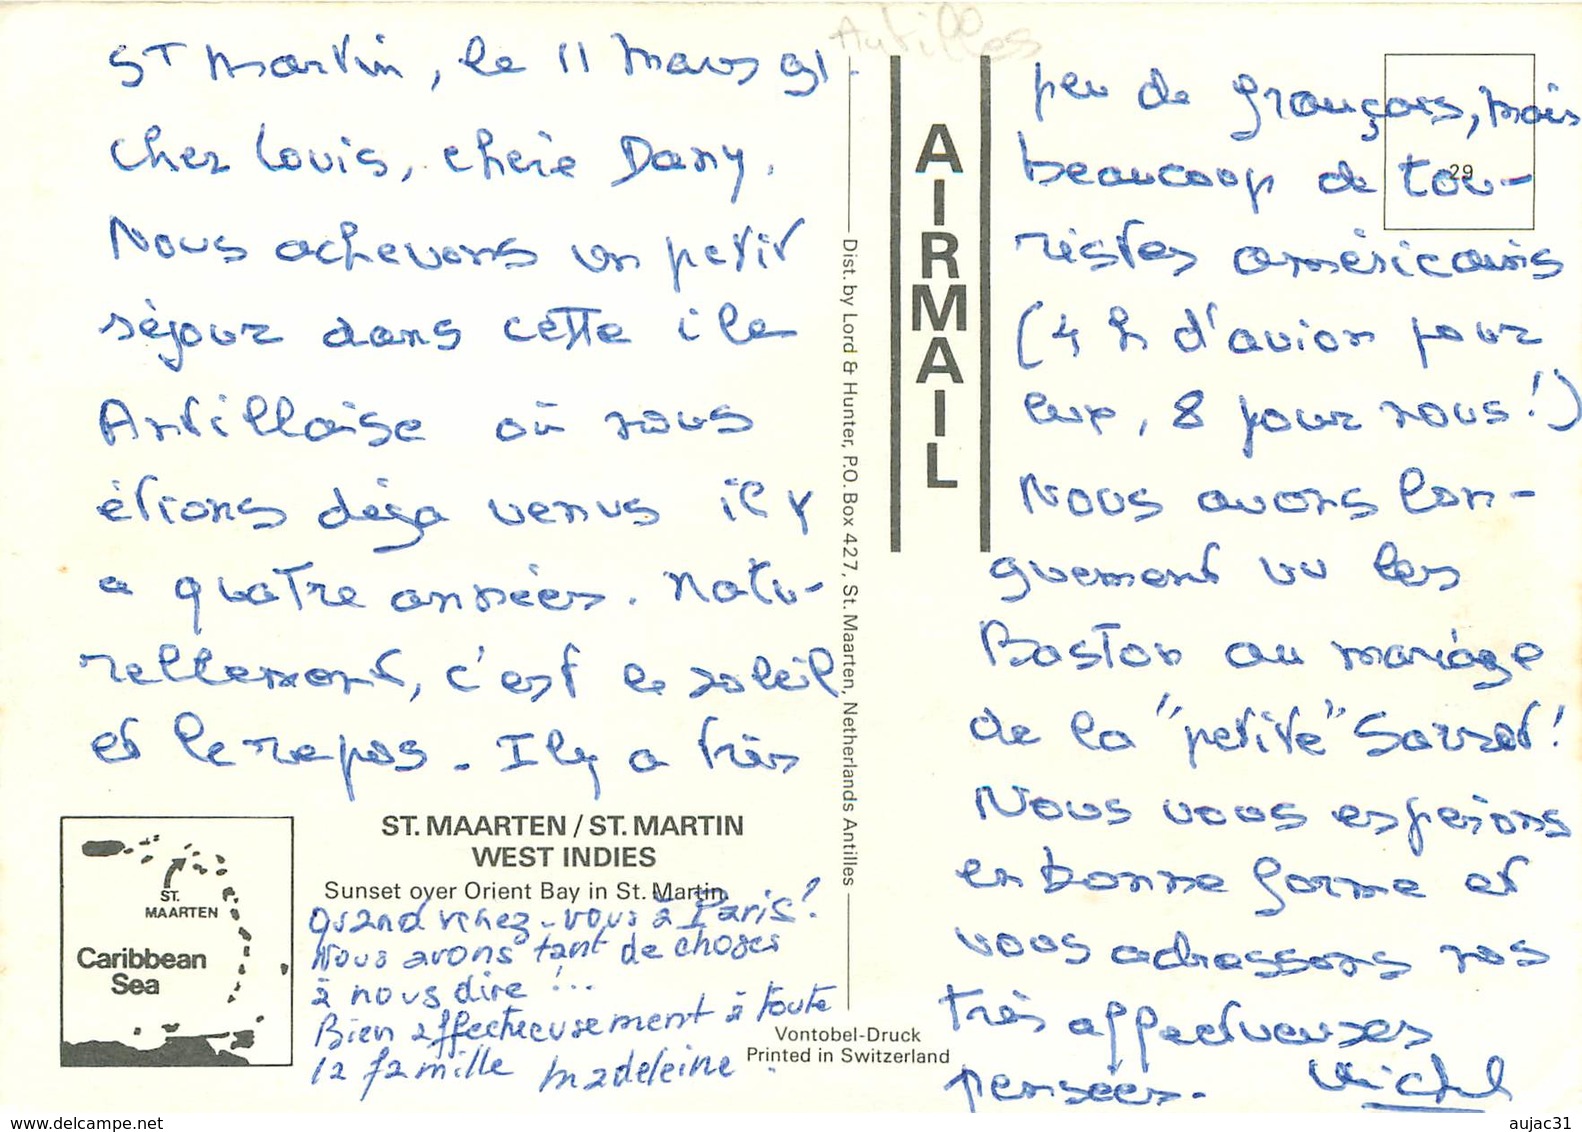 Antilles
ST Martin, le 11 Mars 91.
Cher Louis, chère Dany,
Nous achevons un petit
séjour dans cette ile
Antillaise où nous
étions déjà venus il y
a quatre années. Natu-
rellement, c'est le soleil
et le repos. Il y a très
peu de français, mais
beaucoup de tou-
ristes américains
(4 h d'avion pour
eux, 8 pour nous!)
Nous avons lon-
guement vu les
Baston au mariage
de la "petite"
Nous vous espérons
en bonne forme et
vous adressons nos
très affectueuses
pensées.
Michel
Quand venez-vous à Paris?
Nous avons tant de choses
à nous dire !...
Bien affectueusement à toute
la famille Madeleine
AIRMAIL
29
Dist. by Lord & Hunter, P.O. Box 427, St. Maarten, Netherlands Antilles
ST. MAARTEN / ST. MARTIN
WEST INDIES
Sunset over Orient Bay in St. Martin
ST.
MAARTEN
Caribbean
Sea
Vontobel-Druck
Printed in Switzerland
www.delcampe.net
aujac31